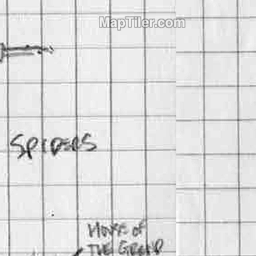 MapTiler.com
SPIDERS
HOUSE OF
THE GREAP